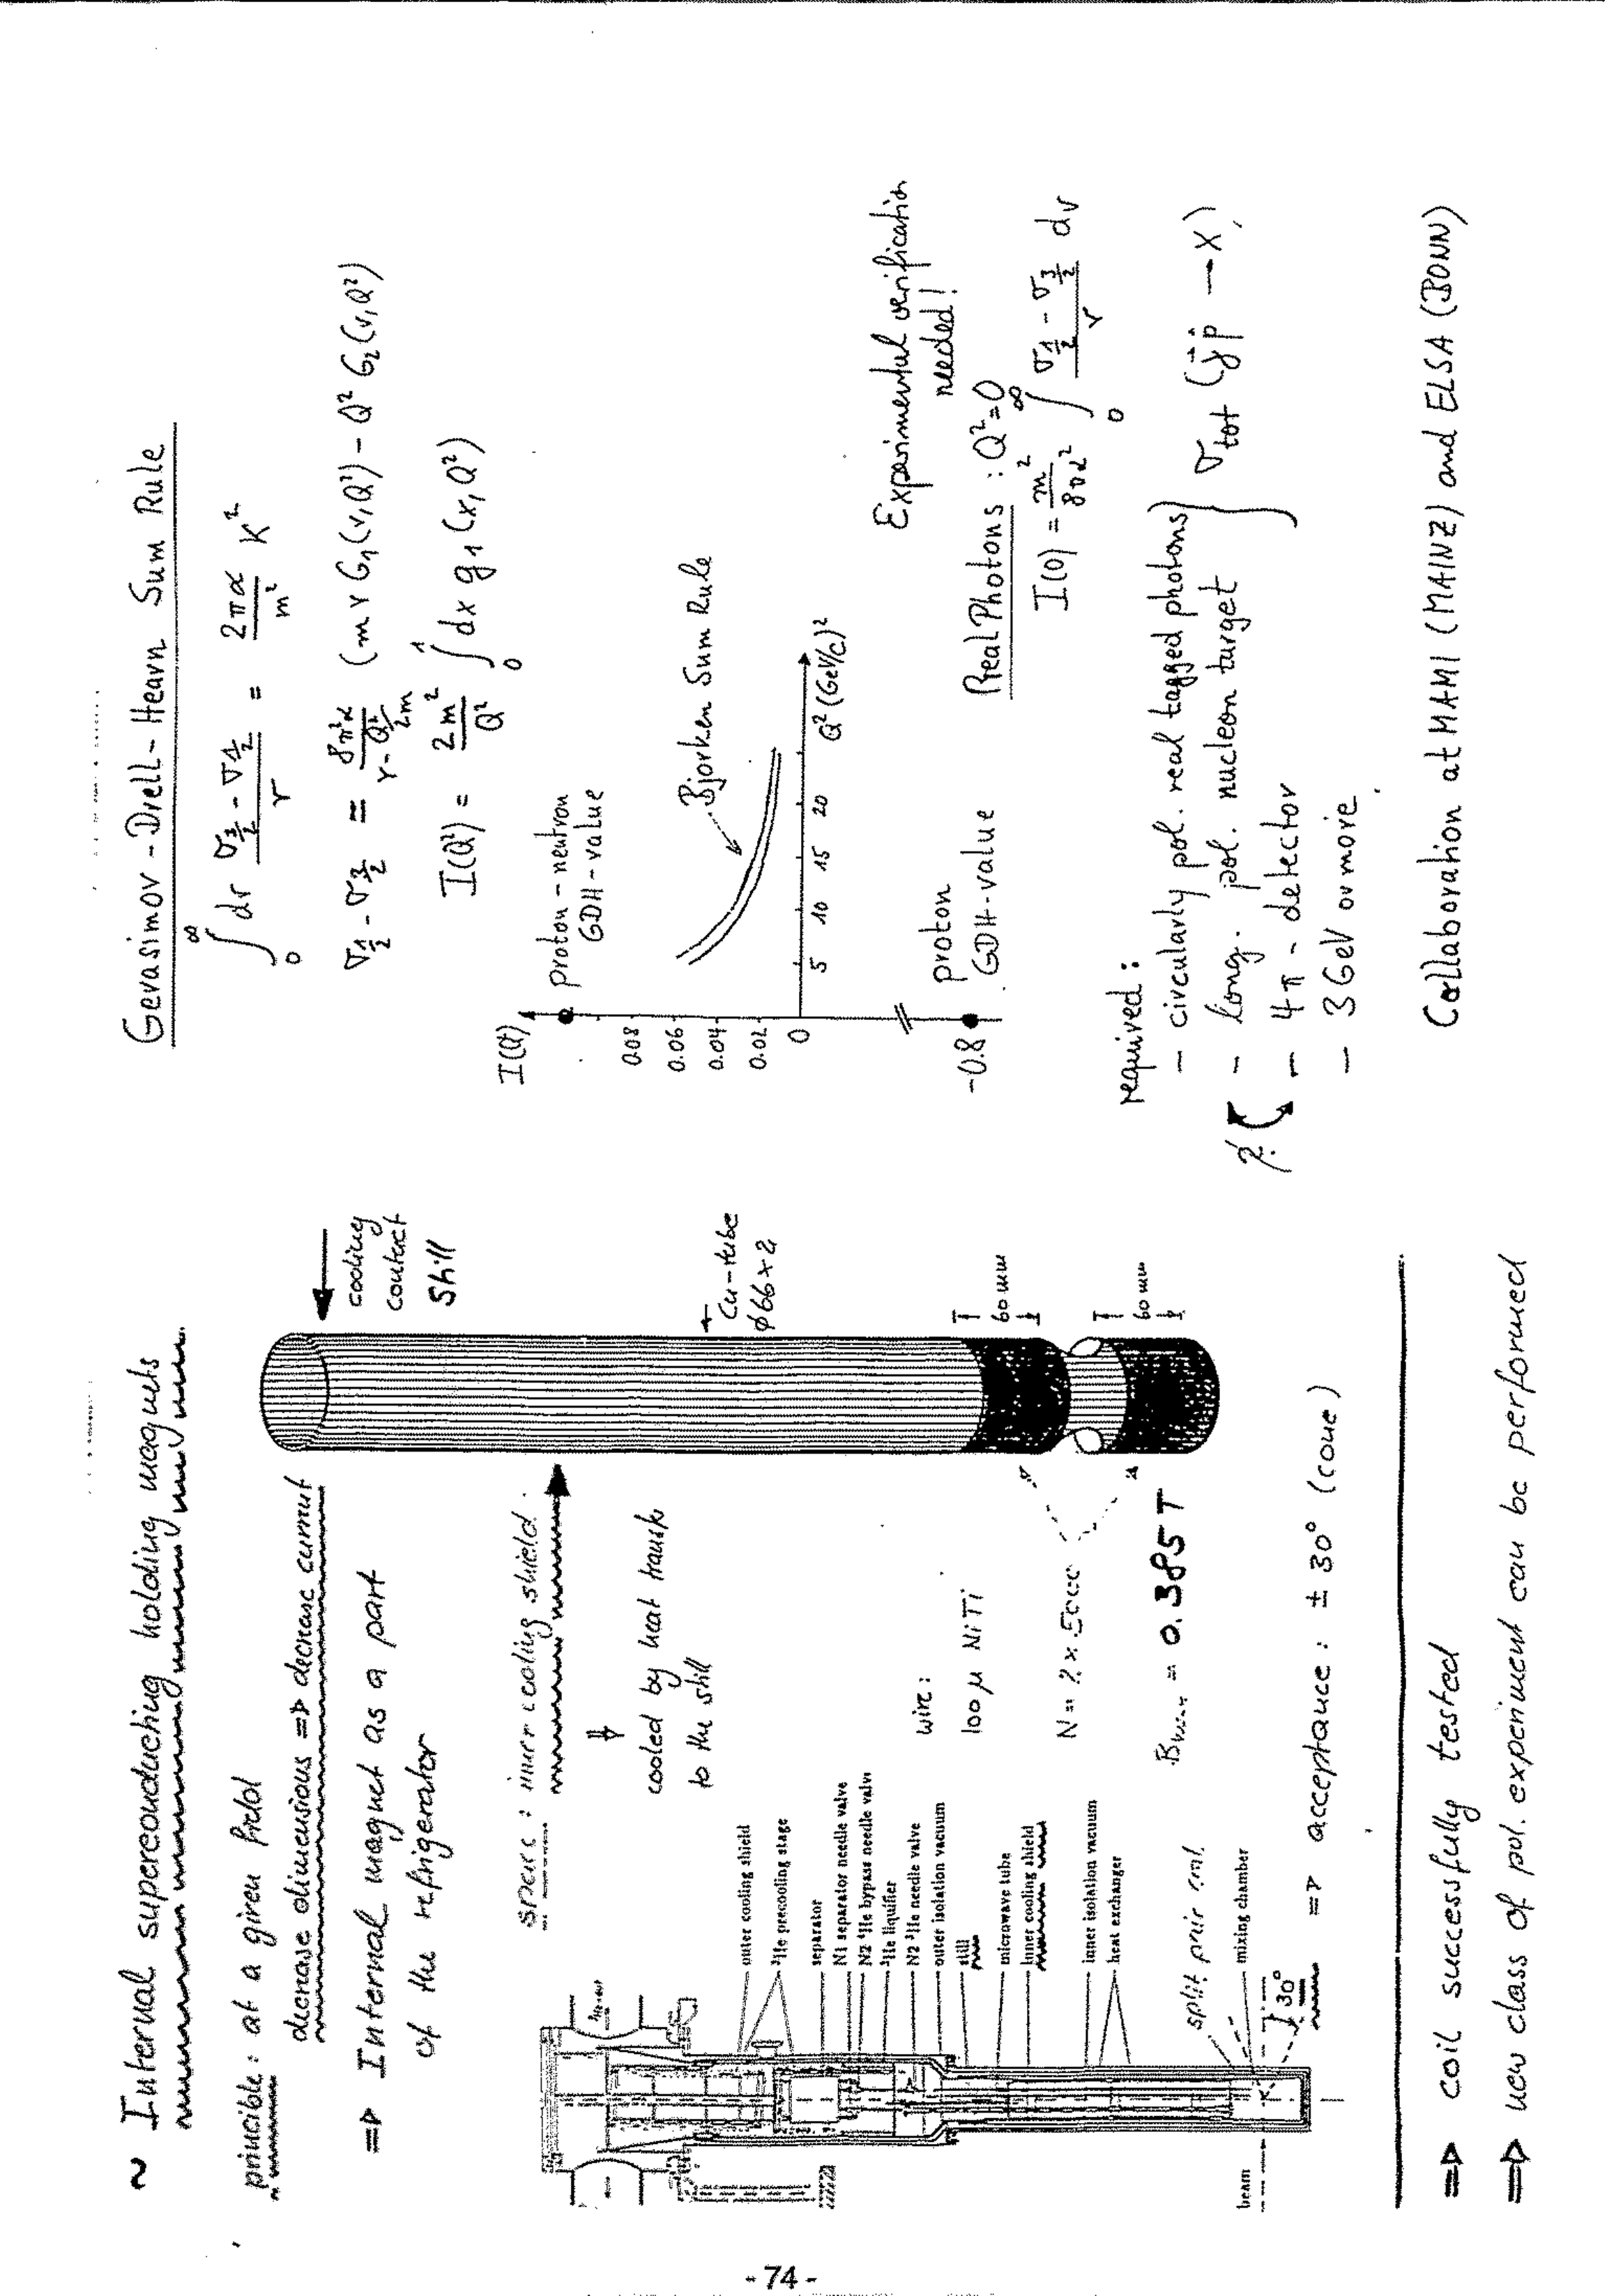 2 Internal superconducting holding magnets
princible: at a given field
decrease dimensions => decrease current
=> Internal magnet as a part
of the refrigerator
: inner cooling shield
⇓
cooled by heat transfer
to the still
wire:
100 µ NiTi
N = 2 x 5000
= 0.385 T
cooling
contact
still
Cu-tube
ϕ66x2
60 mm
60 mm
outer cooling shield
³He precooling stage
separator
N1 separator needle valve
N2 ³He bypass needle valve
³He liquifier
N2 ³He needle valve
outer isolation vacuum
still
microwave tube
inner cooling shield
inner isolation vacuum
heat exchanger
split pair
mixing chamber
beam
30°
=> acceptance: ± 30° (cone)
=> coil successfully tested
=> new class of pol. experiment can be performed
Gerasimov-Drell-Hearn Sum Rule
∫₀^∞ dν (σ_{3/2} - σ_{1/2})/ν = 2πα/m² K²
σ_{1/2} - σ_{3/2} = 8π²α/(ν - Q²/2m) (m ν G₁(ν,Q²) - Q² G₂(ν,Q²)
I(Q²) = 2m²/Q² ∫₀¹ dx g₁(x,Q²)
I(Q²)
proton-neutron
GDH-value
0.08
0.06
0.04
0.02
0
Bjorken Sum Rule
5 10 15 20 Q² (GeV/c)²
-0.8
proton
GDH-value
Experimental verification
needed!
Real Photons: Q²=0
I(0) = m²/8πα² ∫₀^∞ (σ_{1/2} - σ_{3/2})/ν dν
required:
- circularly pol. real tagged photons
- long. pol. nucleon target
σ_tot (γ⃗ p⃗ → X)
?
- 4π - detector
- 3 GeV or more
Collaboration at MAMI (MAINZ) and ELSA (BONN)
- 74 -